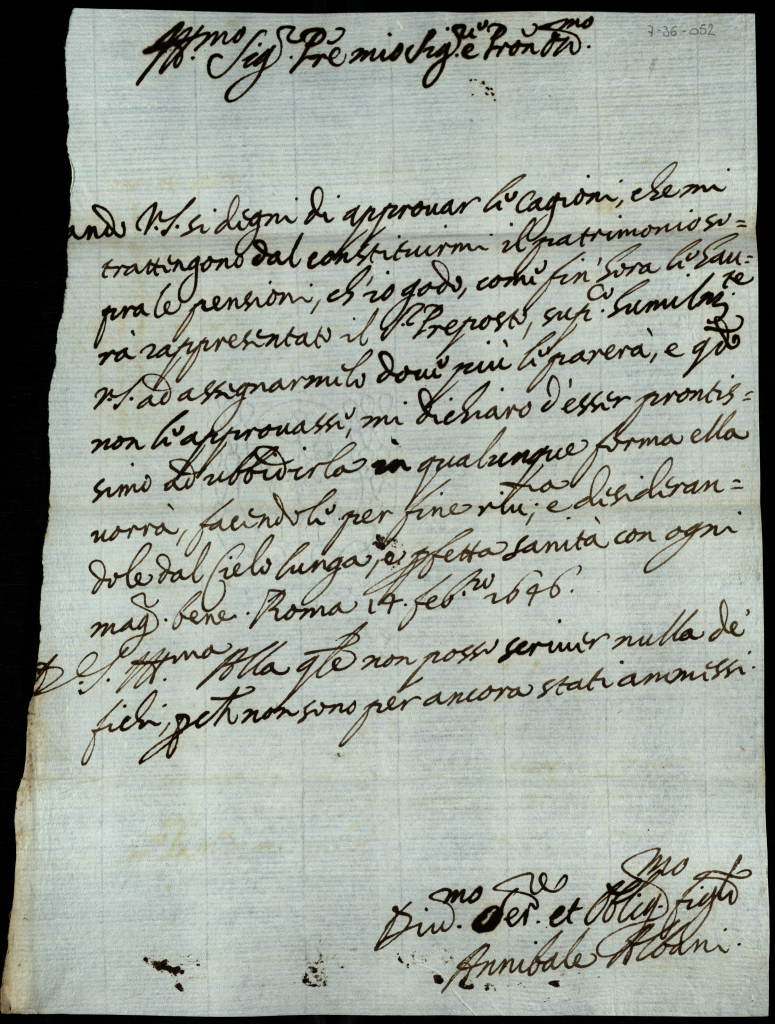 7-36-052
Ill.mo Sig.r P.re mio Sig.re e Pron Col.mo
ando V.S. si degni di approuar le cagioni, che mi
trattengono dal constituirmi il patrimonio so=
pra le pensioni, ch'io godo, come fin' hora le hau=
rà rappresentato il S.r Preposto, sup.co humilm.te
V.S. ad assegnarmelo doue più le parerà, e q.do
non le approuasse, mi dichiaro d'esser prontis=
simo ad ubbidirla in qualunque forma ella
uorrà, facendole per fine riu.za; e desideran=
dole dal Cielo lunga, e pfetta sanità con ogni
mag.r bene. Roma 14. feb.ro 1646.
D. S. Ill.ma Alla q.le non posso scriuer nulla de'
fichi, pch non sono per ancora stati ammessi.
Diu.mo Ser.re et Oblig.mo figlio
Annibale Albani.